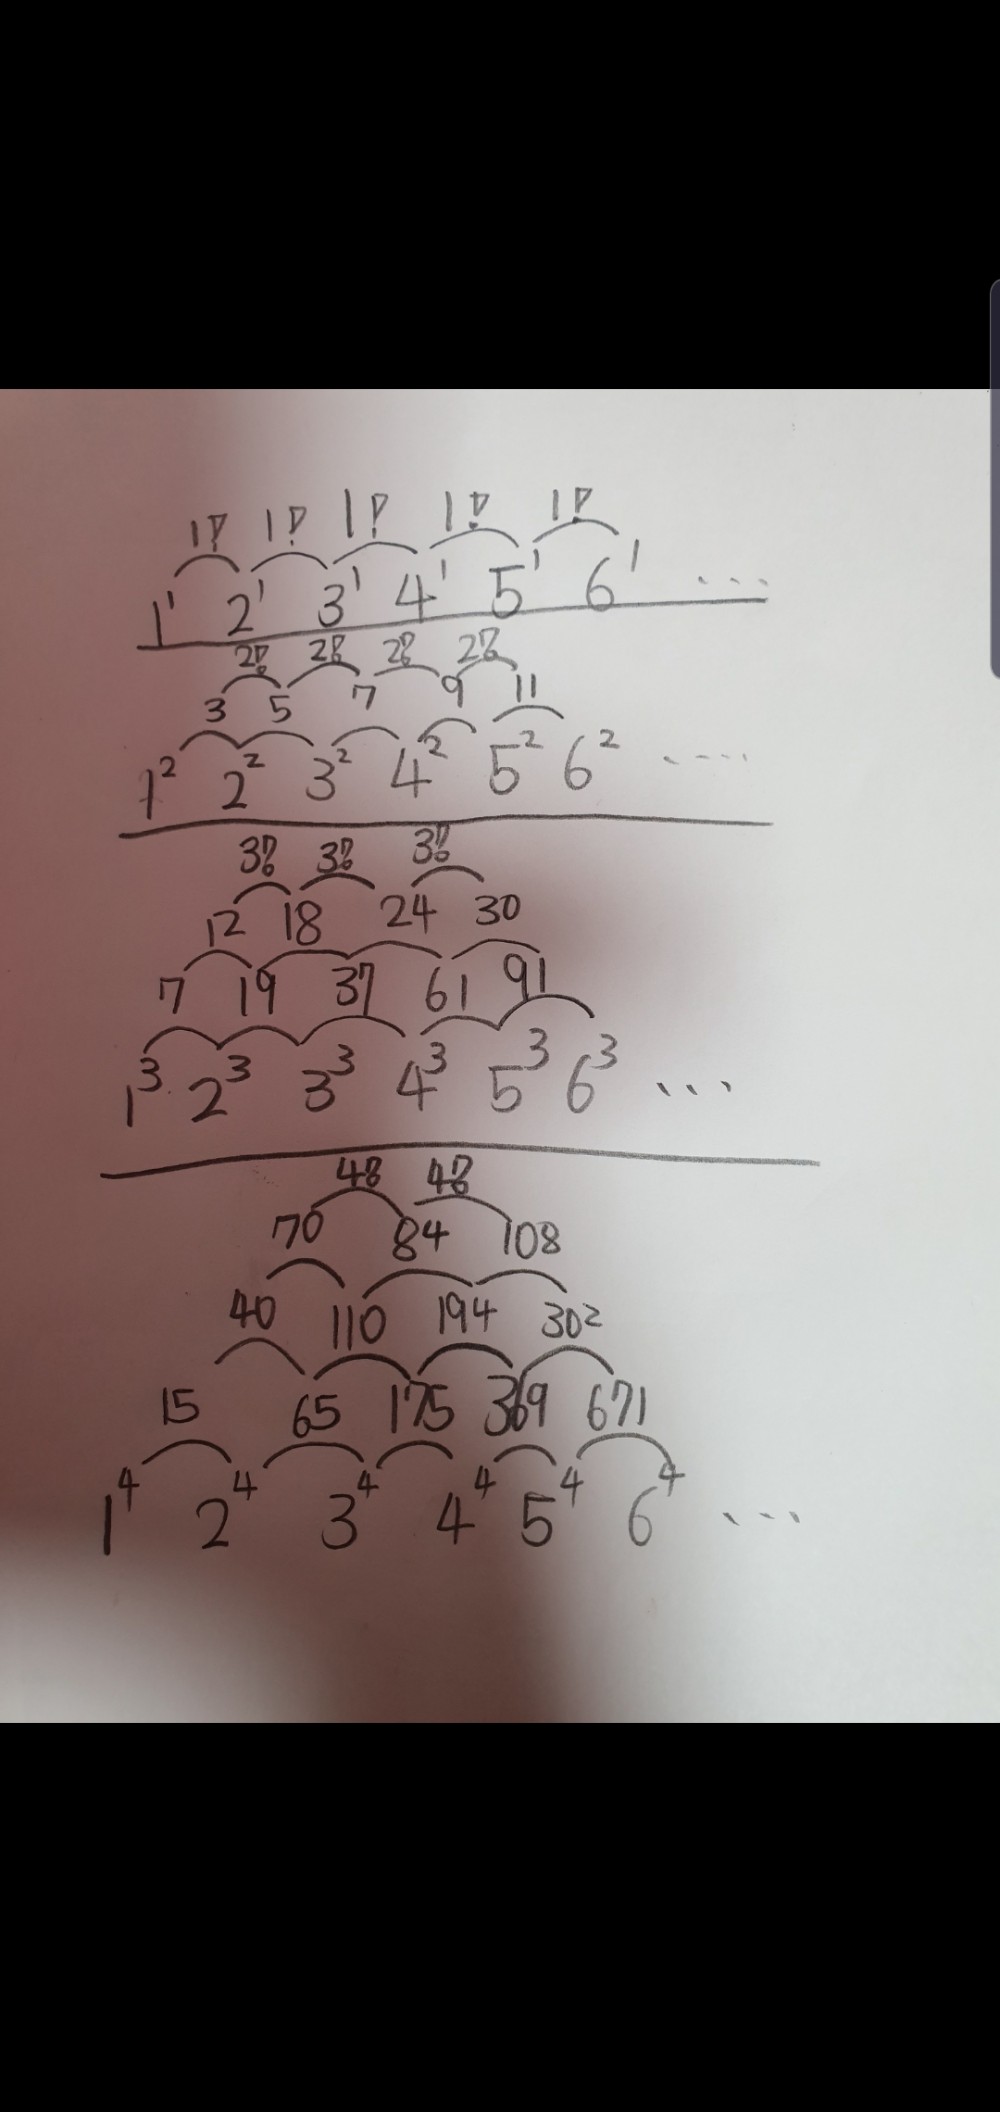 1! 1! 1! 1! 1!
1¹ 2¹ 3¹ 4¹ 5¹ 6¹ ...
2! 2! 2! 2!
3 5 7 9 11
1² 2² 3² 4² 5² 6² ....
3! 3! 3!
12 18 24 30
7 19 37 61 91
1³ 2³ 3³ 4³ 5³ 6³ ...
4! 4!
70 84 108
40 110 194 302
15 65 175 369 671
1⁴ 2⁴ 3⁴ 4⁴ 5⁴ 6⁴ ...